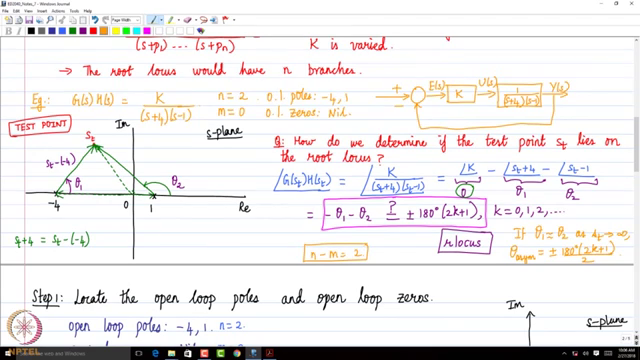 EE2040_Notes_7 - Windows Journal
File Edit View Insert Actions Tools Help
Page Width
(s+p1) ... (s+pn)
K is varied.
→ The root locus would have n branches.
Eg: G(s) H(s) = K / (s+4)(s-1)
n = 2 O.L poles: -4, 1
m = 0 O.L zeros: Nil.
+ - E(s) K U(s) 1 / (s+4)(s-1) Y(s)
TEST POINT
Im
s-plane
st
st-(-4)
θ1
θ2
-4 0 1 Re
st+4 = st-(-4)
Q: How do we determine if the test point st lies on
the root locus ?
∠G(st)H(st) = ∠K / (st+4)(st-1) = ∠K - ∠st+4 - ∠st-1
0 θ1 θ2
= -θ1 - θ2 ?= ± 180° (2k+1), k = 0, 1, 2, ....
n - m = 2
rlocus
If θ1 ≈ θ2 as st → ∞,
θasym = ± 180° (2k+1) / 2
Step 1: Locate the open loop poles and open loop zeros.
open loop poles: -4, 1. n = 2.
Im
s-plane
NPTEL
10:06 AM